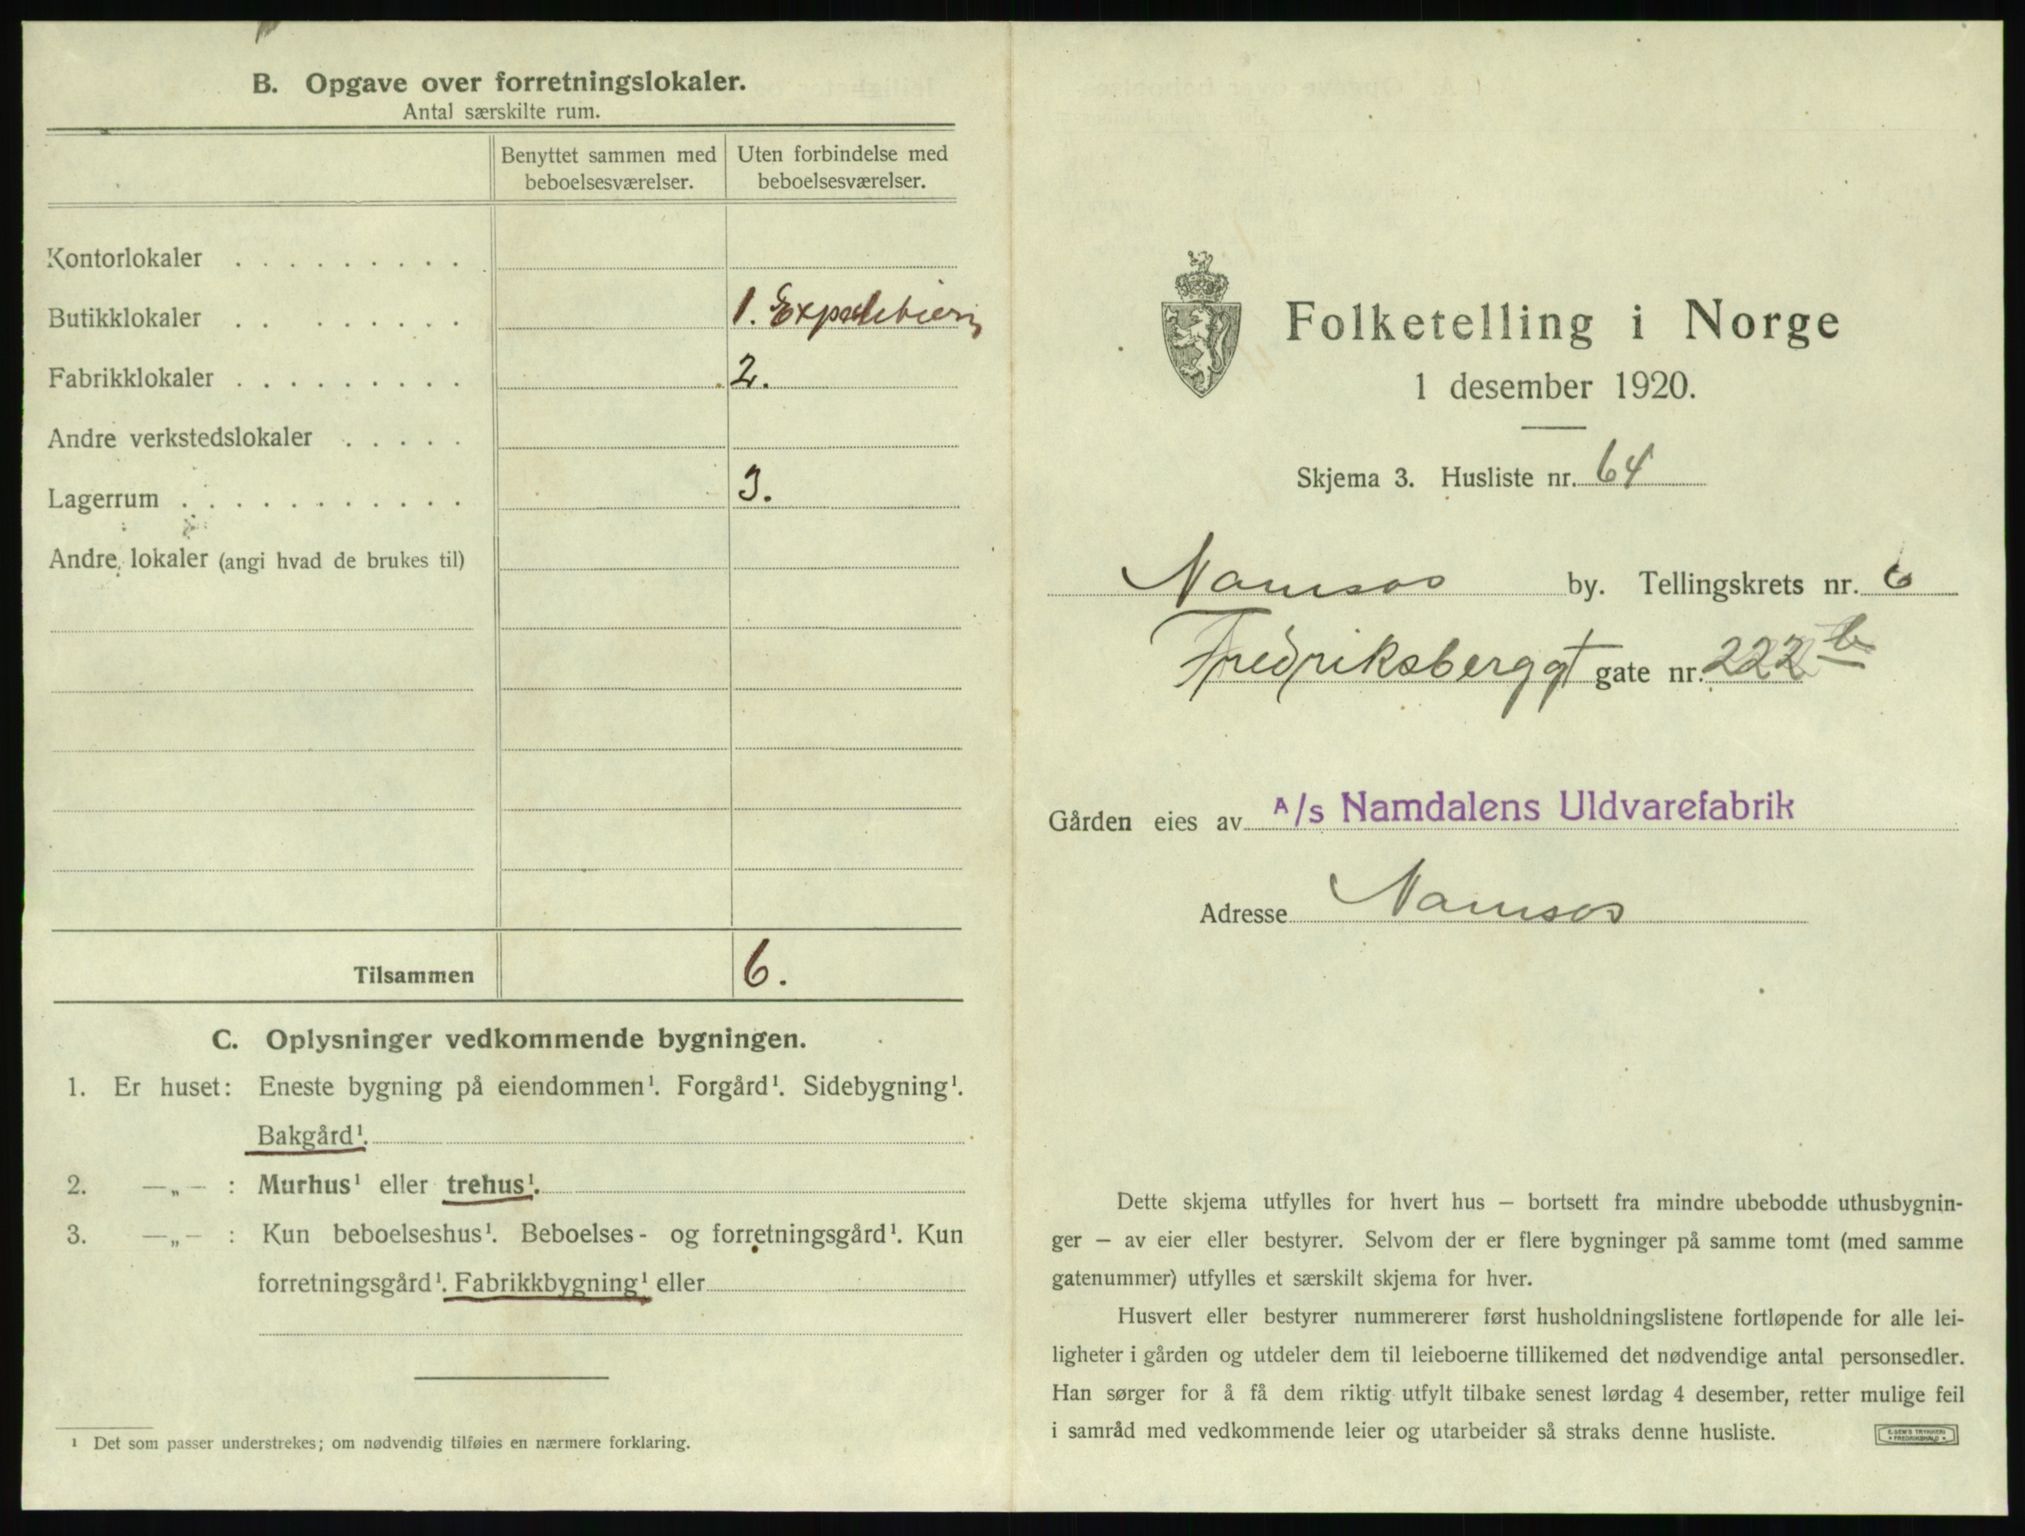 B. Opgave over forretningslokaler.
Antal særskilte rum.
Benyttet sammen med beboelsesværelser.
Uten forbindelse med beboelsesværelser.
Kontorlokaler
Butikklokaler 1. Expedition
Fabrikklokaler 2.
Andre verkstedslokaler
Lagerrum 3.
Andre lokaler (angi hvad de brukes til)
Tilsammen 6.
C. Oplysninger vedkommende bygningen.
1. Er huset: Eneste bygning på eiendommen¹. Forgård¹. Sidebygning¹.
Bakgård¹.
2. —„— : Murhus¹ eller trehus¹.
3. —„— : Kun beboelseshus¹. Beboelses- og forretningsgård¹. Kun
forretningsgård¹. Fabrikkbygning¹ eller
¹ Det som passer understrekes; om nødvendig tilføies en nærmere forklaring.
Folketelling i Norge
1 desember 1920.
Skjema 3. Husliste nr. 64
Namsos by. Tellingskrets nr. 6
Fredriksberggt gate nr. 222 b
Gården eies av A/s Namdalens Uldvarefabrik
Adresse Namsos
Dette skjema utfylles for hvert hus – bortsett fra mindre ubebodde uthusbygnin-
ger – av eier eller bestyrer. Selvom der er flere bygninger på samme tomt (med samme
gatenummer) utfylles et særskilt skjema for hver.
Husvert eller bestyrer nummererer først husholdningslistene fortløpende for alle lei-
ligheter i gården og utdeler dem til leieboerne tillikemed det nødvendige antal personsedler.
Han sørger for å få dem riktig utfylt tilbake senest lørdag 4 desember, retter mulige feil
i samråd med vedkommende leier og utarbeider så straks denne husliste.
E. SEM'S TRYKKERI
FREDRIKSHALD